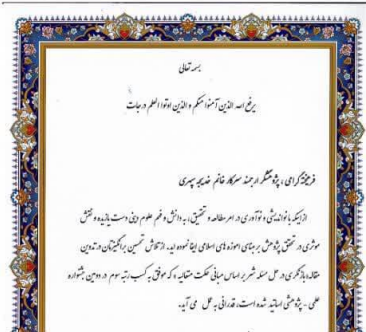 بسمه تعالی
یرفع الله الذین آمنوا منکم و الذین اوتوا العلم درجات
فرهیخته گرامی، پژوهشگر ارجمند سرکار خانم خدیجه سپهری
ازاینکه با نواندیشی و نوآوری در امر مطالعه و تحقیق، به دانش و فهم علوم دینی دست یازیده و نقش
موثری در تحقق پژوهش بر مبنای آموزه های اسلامی ایفا نموده اید. از تلاش تحسین برانگیزتان در تدوین
مقاله «بازنگری در حل مسئله شر بر اساس مبانی حکمت متعالیه»، که موفق به کسب رتبه سوم در دومین جشنواره
علمی - پژوهشی اساتید شده است، قدردانی به عمل می آید.